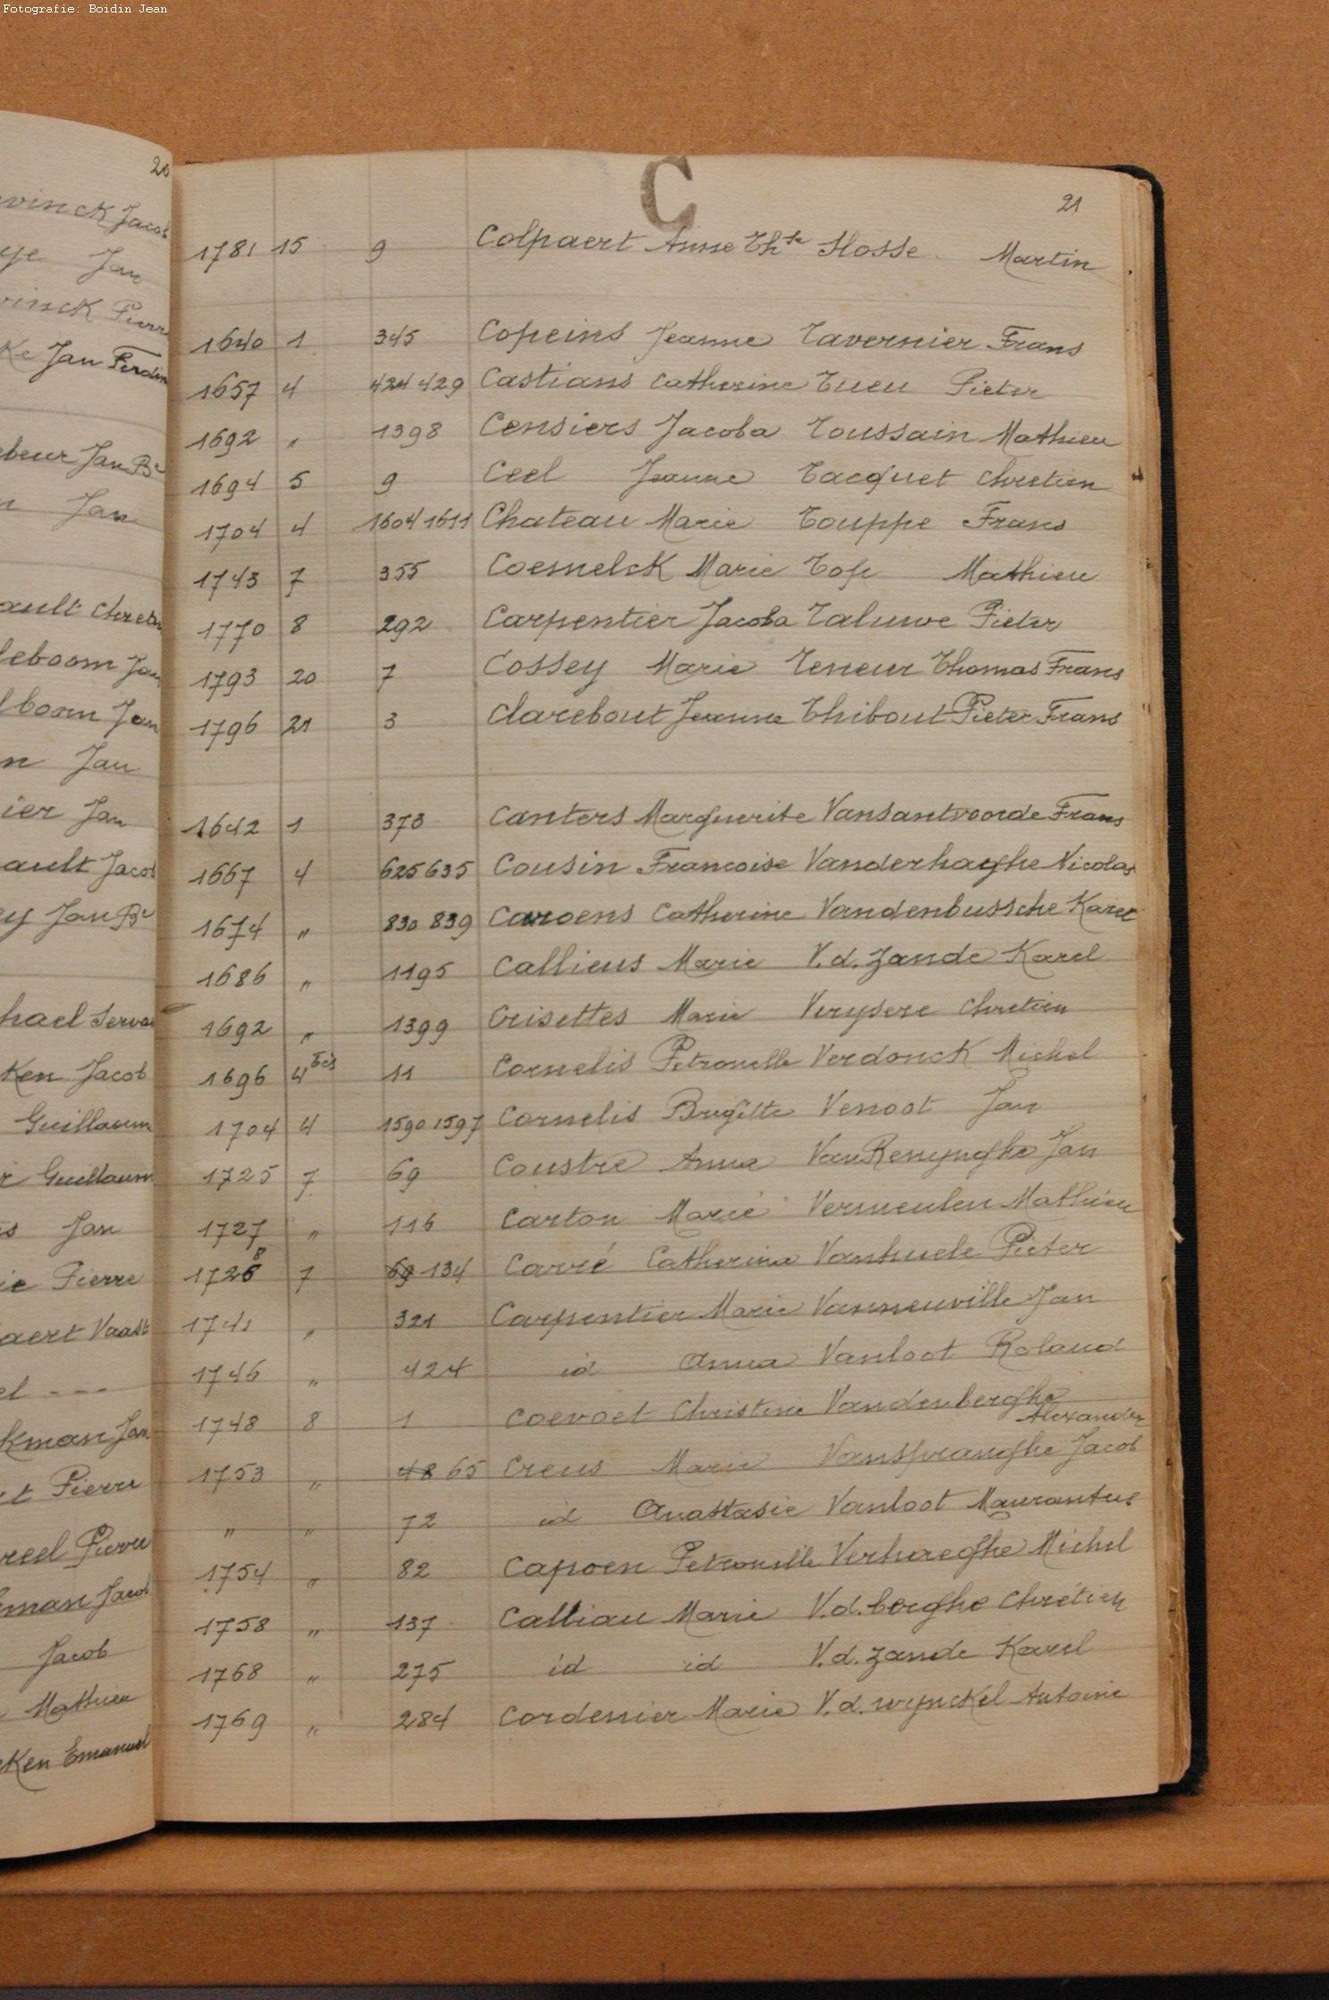 Fotografie: Boidin Jean
20
vinck Jacob
ye Jan
vinck Pierre
ke Jan Ferdin
beur Jan Bte
n Jan
ault Chretien
leboom Jan
lboom Jan
n Jan
ier Jan
ault Jacob
ey Jan Bte
hael Servaas
Ken Jacob
Guillaum
r Guillaum
s Jan
ie Pierre
aert Vaast
el ---
kman Jan
t Pierre
reel Pierre
eman Jacob
Jacob
Mathieu
cken Emanuel
C
21
1781 15 9 Colpaert Anne Thse Slosse Martin
1640 1 345 Copeins Jeanne Tavernier Frans
1657 4 424 429 Castians Catherine Tueu Pieter
1692 " 1398 Censiers Jacoba Toussain Mathieu
1694 5 9 Ceel Jeanne Tacquet Chretien
1704 4 1604 1611 Chateau Marie Touppe Frans
1743 7 355 Coemelck Marie Top Mathieu
1770 8 292 Carpentier Jacoba Taluwe Pieter
1793 20 7 Cossey Marie Teneur Thomas Frans
1796 21 3 Clarebout Jeanne Thibout Pieter Frans
1642 1 373 Canters Marguerite Vansantvoorde Frans
1667 4 625 635 Cousin Francoise Vanderhaghe Nicolas
1674 " 830 839 Caroens Catherine Vandenbussche Karel
1686 " 1195 Callieus Marie V.d. Zande Karel
1692 " 1399 Crisettes Marie Verysere Chretien
1696 4bis 11 Cornelis Petronelle Verdonck Michel
1704 4 1590 1597 Cornelis Brigitte Venoot Jan
1725 7 69 Coustre Anna VanRenynghe Jan
1727 " 116 Carton Marie Vermeulen Mathieu
1728 7 69 134 Carré Catherina Vanhuele Pieter
1741 " 321 Carpentier Marie Vanneuville Jan
1746 " 424 id Anna Vanloot Roland
1748 8 1 Coevoet Christine Vandenberghe
Alexander
1753 " 48 65 Creus Marie Vanspranghe Jacob
" " 72 id Anastasie Vanloot Maurantus
1754 " 82 Capoen Petronelle Verhaeghe Michel
1758 " 137 Calliau Marie V.d. berghe Chrétien
1768 " 275 id id V.d. Zande Karel
1769 " 284 Cordenier Marie V.d. wynckel Antoine